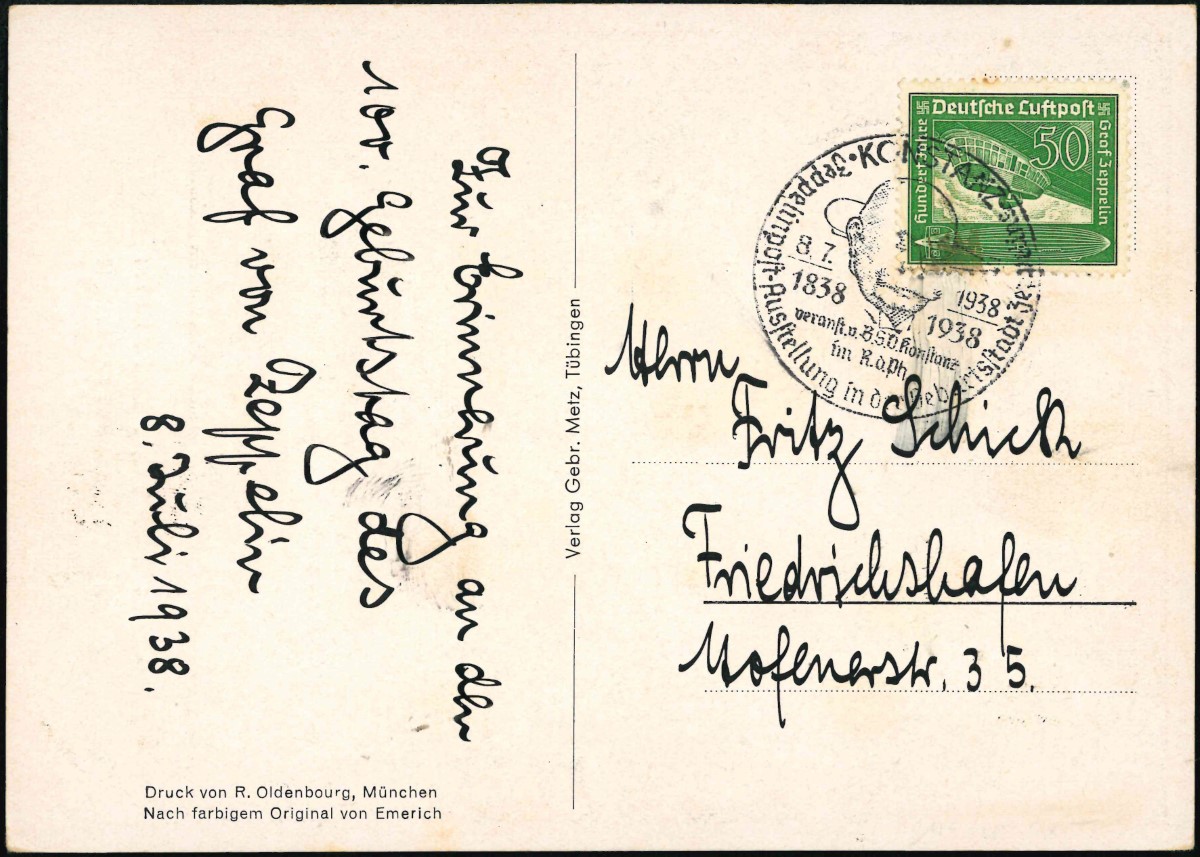 Zur Erinnerung an den
100. Geburtstag des
Graf von Zeppelin
8. Juli 1938.
Druck von R. Oldenbourg, München
Nach farbigem Original von Emerich
Verlag Gebr. Metz, Tübingen
Deutsche Luftpost
50
Hundert Jahre
Graf Zeppelin
KONSTANZ
Zeppelinpost-Ausstellung in der Geburtsstadt
8.7.
1838
1938
1938
veranst. v. B.S.V. Konstanz
im R.d.Ph.
Herrn
Fritz Schick
Friedrichshafen
35.